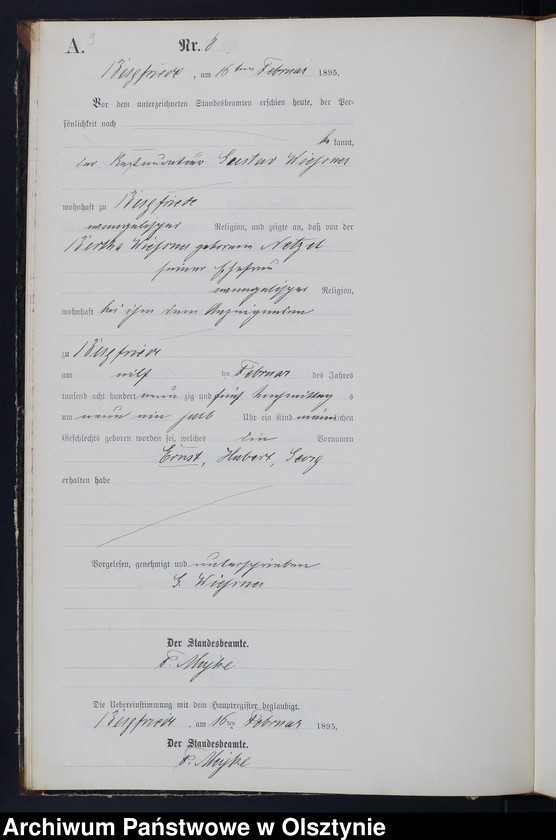 A. 9
Nr. 8
Bergfriede, am 16ten Februar 1895.
Vor dem unterzeichneten Standesbeamten erschien heute, der Per-
sönlichkeit nach
be kannt,
der Restaurateur Gustav
wohnhaft zu Bergfriede
evangelischer Religion, und zeigte an, daß von der
Bertha geborenen Netzel
seiner Ehefrau
evangelischer Religion,
wohnhaft bei ihm dem Anzeigenden
zu Bergfriede
am elf ten Februar des Jahres
tausend acht hundert neun zig und fünf Nachmittag s
um neun ein halb Uhr ein Kind männlichen
Geschlechts geboren worden sei, welches die Vornamen
Ernst, Hubert, Georg
erhalten habe
Vorgelesen, genehmigt und unterschrieben
G.
Der Standesbeamte.
Die Uebereinstimmung mit dem Hauptregister beglaubigt.
Bergfriede, am 16ten Februar 1895.
Der Standesbeamte.
Archiwum Państwowe w Olsztynie